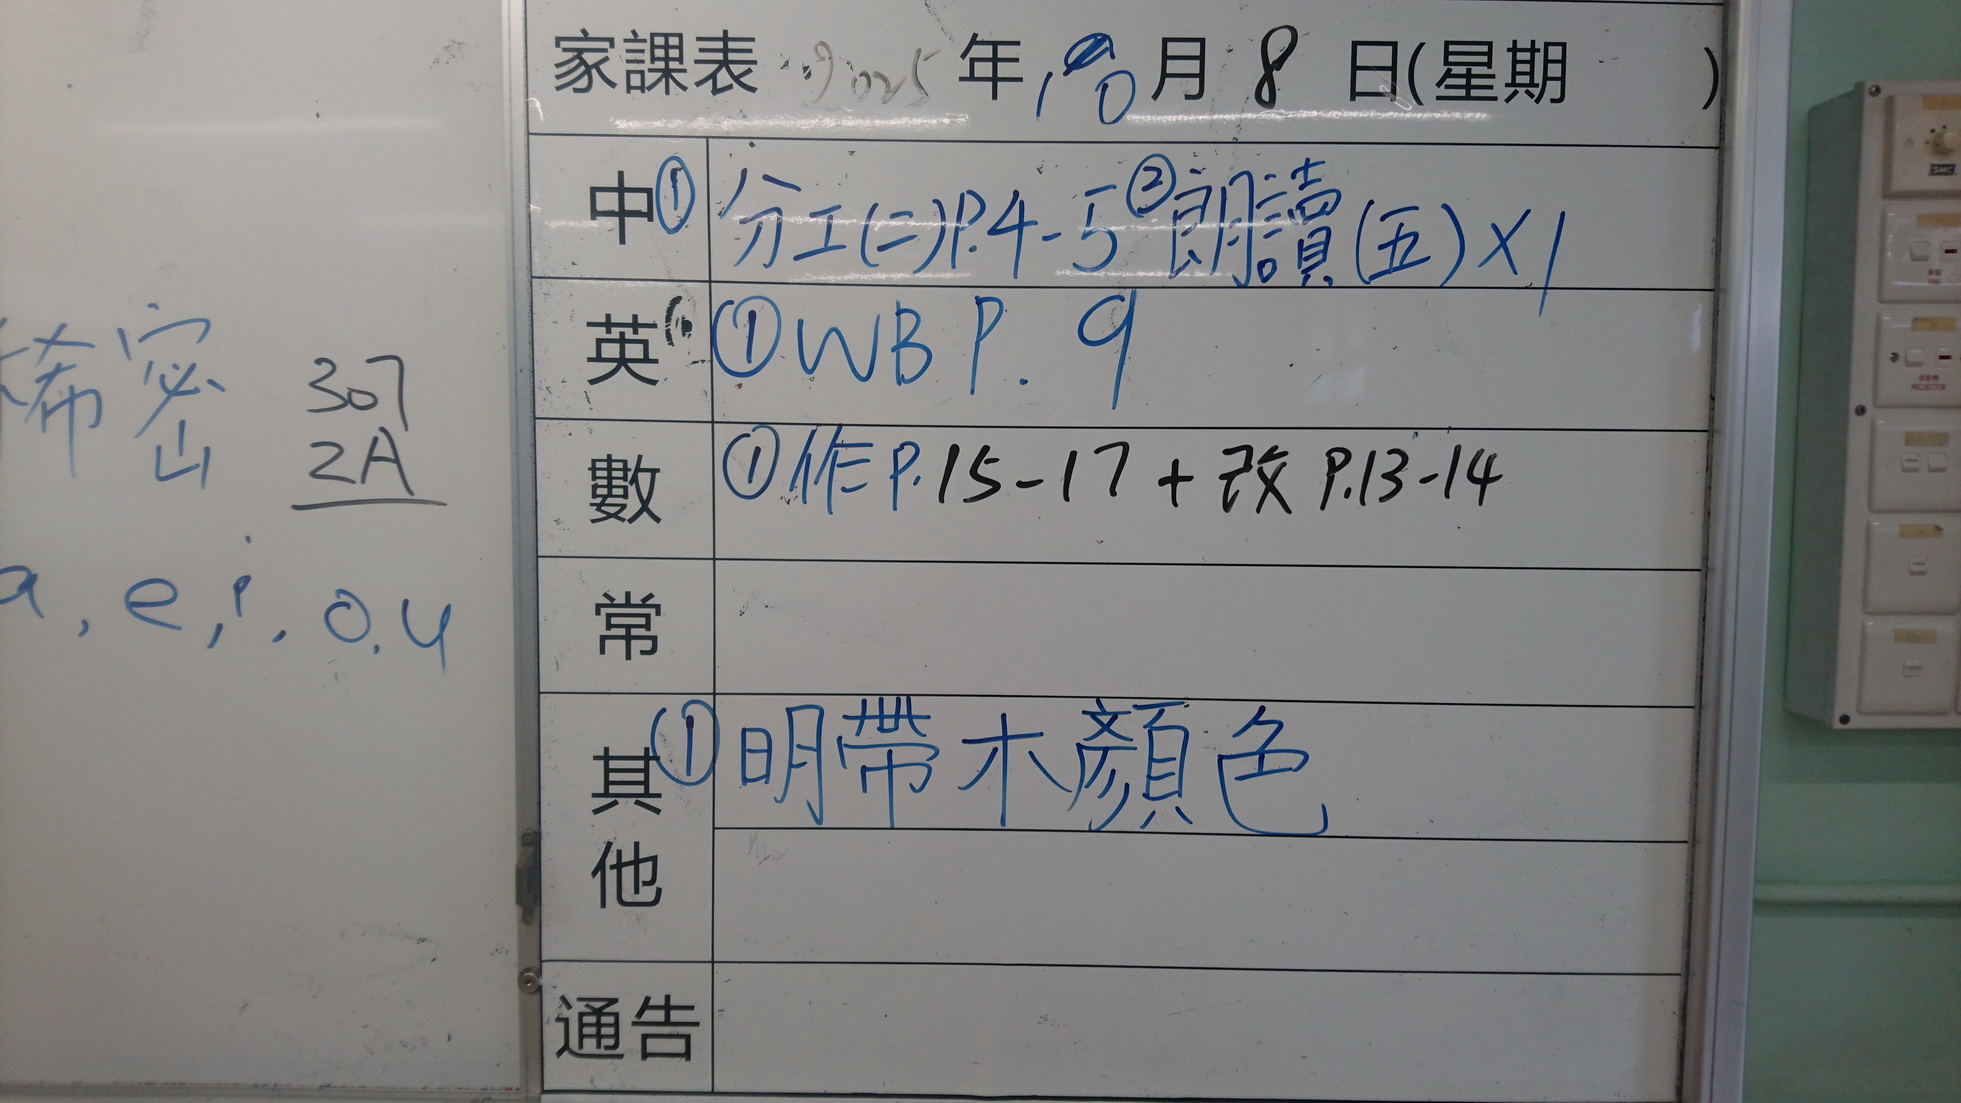 稀密
307
2A
a, e, i, o, u
家課表 2025 年 10 月 8 日(星期 )
中 ① 分工(二)P.4-5 ② 朗讀(五)×1
英 ① WB P. 9
數 ① 作 P.15-17 + 改 P.13-14
常
其他 ① 明帶木顏色
通告
SMC
PROJECTOR